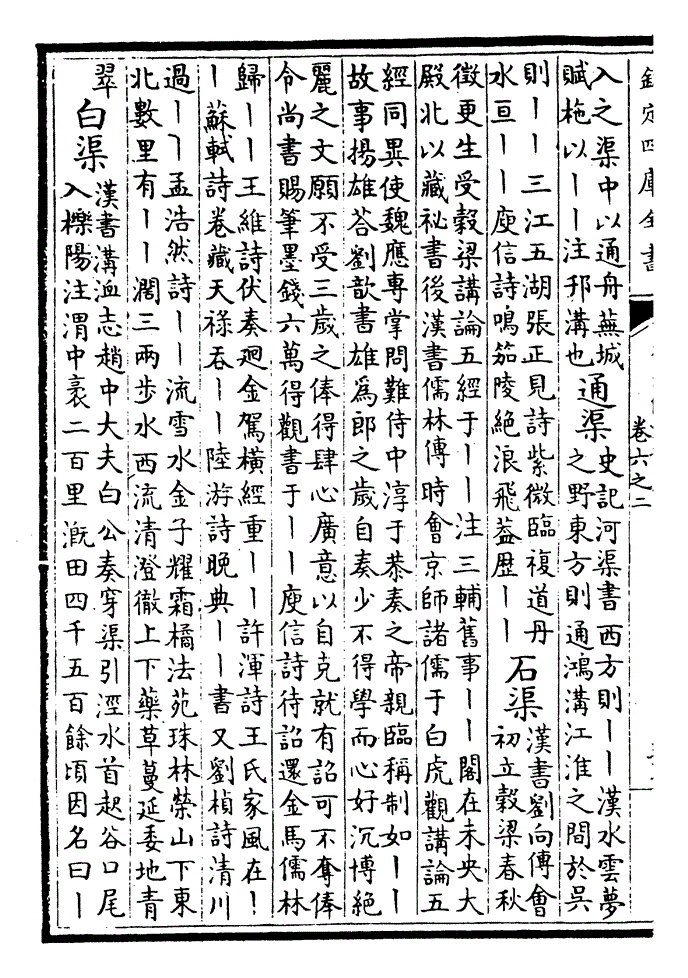 欽定四庫全書
卷六之二
入之渠中以通舟蕪城
賦柂以丨丨注邗溝也
通渠
史記河渠書西方則丨丨漢水雲夢
之野東方則通鴻溝江淮之間於吳
則丨丨三江五湖張正見詩紫微臨複道丹
水亘丨丨庾信詩鳴笳陵絕浪飛葢歴丨丨
石渠
漢書劉向傳會
初立穀梁春秋
徵更生受穀梁講論五經于丨丨注三輔舊事丨丨閣在未央大
殿北以藏祕書後漢書儒林傳時會京師諸儒于白虎觀講論五
經同異使魏應專掌問難侍中淳于恭奏之帝親臨稱制如丨丨
故事揚雄答劉歆書雄爲郎之歲自奏少不得學而心好沉博絕
麗之文願不受三歲之俸得肆心廣意以自克就有詔可不奪俸
令尚書賜筆墨錢六萬得觀書于丨丨庾信詩待詔還金馬儒林
歸丨丨王維詩伏奏廻金駕橫經重丨丨許渾詩王氏家風在丨
丨蘇軾詩卷藏天祿吞丨丨陸游詩晚典丨丨書又劉楨詩清川
過丨丨孟浩然詩丨丨流雪水金子耀霜橘法苑珠林榮山下東
北數里有丨丨濶三兩步水西流清澄徹上下藥草蔓延委地青
翠
白渠
漢書溝洫志趙中大夫白公奏穿渠引涇水首起谷口尾
入櫟陽注渭中袤二百里溉田四千五百餘頃因名曰丨